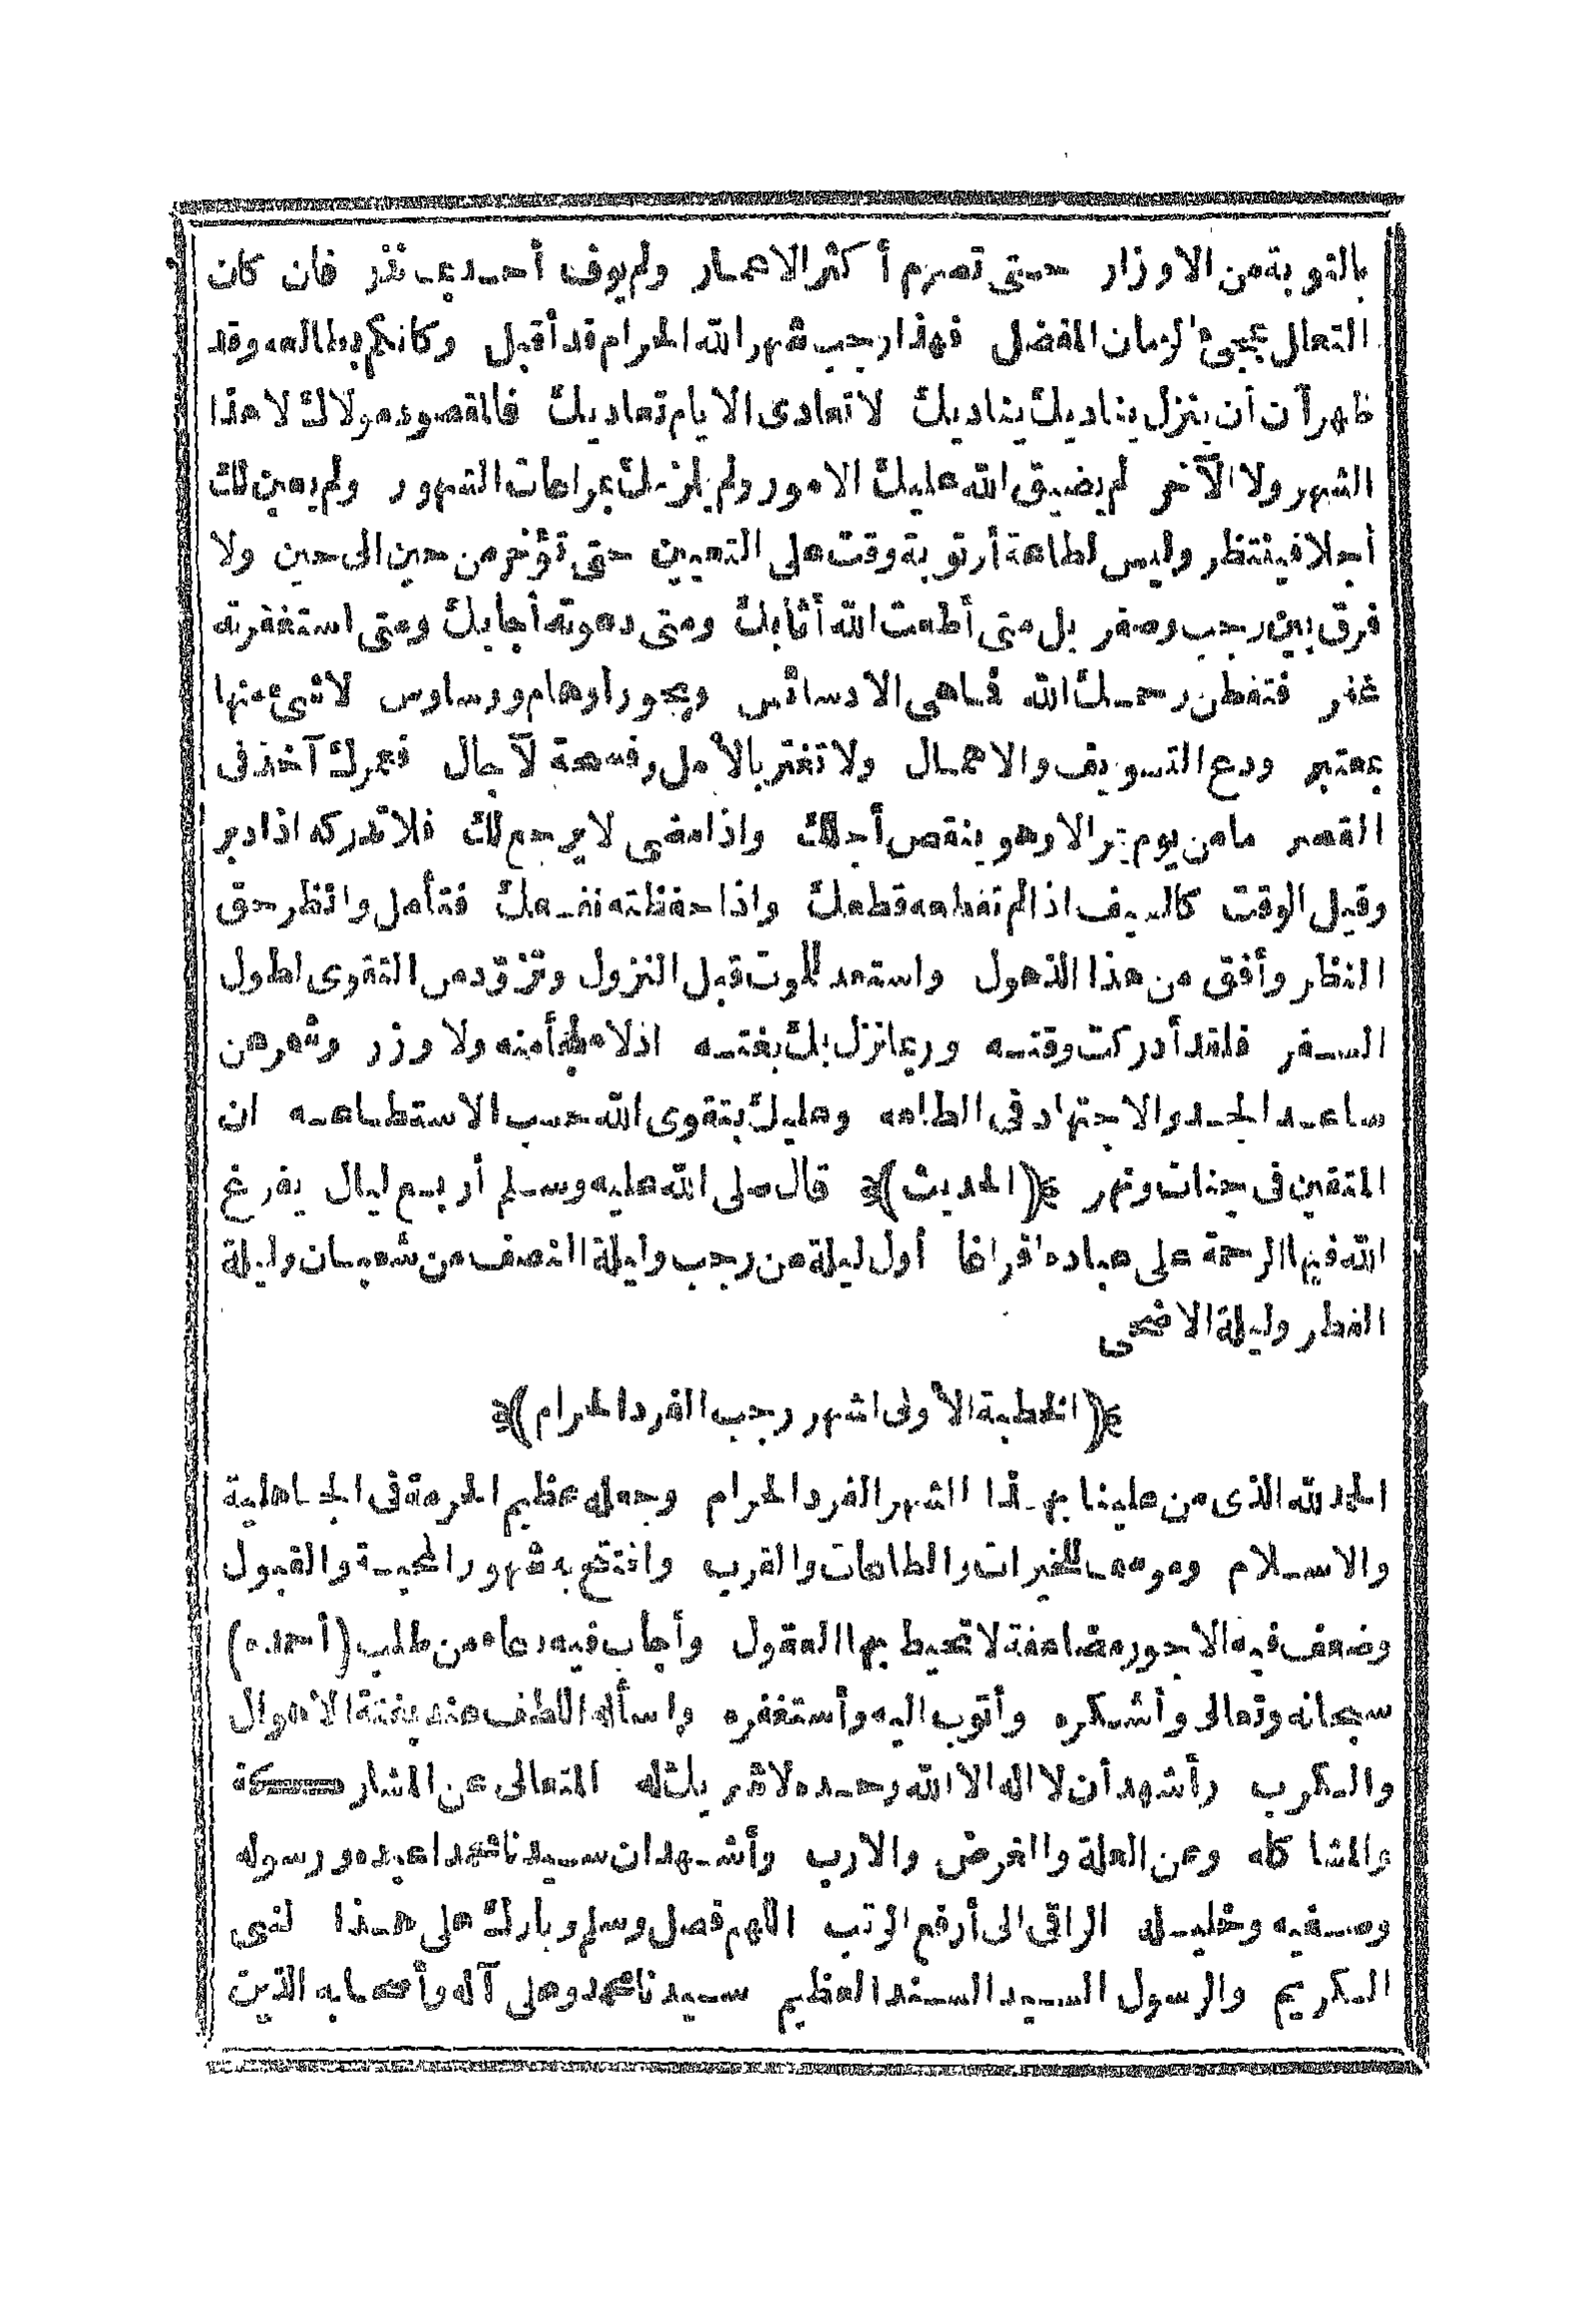 بالتوبة من الاوزار حتى تصرم أكثر الاعمار ولم يوف أحد بما نذر فان كان
التعلل بمجىء الزمان المفضل فهذا رجب شهر الله الحرام قد أقبل وكانكم بطالعه وقد
ظهر آن أن ينزل بناديك يناديك لا تعادى الايام تعاديك فالمقصود مولاك لا هذا
الشهر ولا الآخر لم يضيق الله عليك الامور ولم يلزمك بمراعات الشهور ولم يعين لك
أجلا فينتظر وليس لطاعة أو توبة وقت على التعيين حتى تؤخر من حين الى حين ولا
فرق بين رجب وصفر بل متى أطعت الله أثابك ومتى دعوته أجابك ومتى استغفرته
غفر فتفطن رحمك الله فما هى الا دسائس وبحور أوهام ووساوس لا شىء منها
بمعتبر ودع التسويف والاهمال ولا تغتر بالأمل وفسحة لآجال فعمرك آخذ فى
القصر ما من يوم يمر الا وهو ينقص أجلك واذا مضى لا يرجع لك فلا تدركه اذا دبر
وقيل الوقت كالسيف اذا لم تقطعه قطعك واذا حفظته نفعك فتأمل وانظر حق
النظر وأفق من هذا الذهول واستعد للموت قبل النزول وتزود من التقوى لطول
السفر فلقد أدركت وقته وربما نزل بك بغته اذ لا ملجأ منه ولا وزر وشمر عن
ساعد الجد والاجتهاد فى الطاعه وعليك بتقوى الله حسب الاستطاعه ان
المتقين فى جنات ونهر ﴿(الحديث)﴾ قال صلى الله عليه وسلم أربع ليال يفرغ
الله فيها الرحمة على عباده افراغا أول ليلة من رجب وليلة النصف من شعبان وليلة
الفطر وليلة الاضحى
﴿(الخطبة الأولى لشهر رجب الفرد الحرام)﴾
الحمد لله الذى من علينا بهذا الشهر الفرد الحرام وجعله عظيم الحرمة فى الجاهلية
والاسلام وموسما للخيرات والطاعات والقرب وافتتح به شهور المحبة والقبول
وضعف فيه الاجور مضاعفة لا تحيط بها العقول وأجاب فيه دعاء من طلب (أحمده)
سبحانه وتعالى وأشكره وأتوب اليه وأستغفره واسأله اللطف عند بغتة الاهوال
والكرب وأشهد أن لا اله الا الله وحده لا شريك له المتعالى عن المشاركة
والمشاكله وعن العلة والغرض والارب وأشهد ان سيدنا محمدا عبده ورسوله
وصفيه وخليله الراقى الى أرفع الرتب اللهم فصل وسلم وبارك على هذا لنبى
الكريم والرسول السيد السند العظيم سيدنا محمد وعلى آله وأصحابه الذين